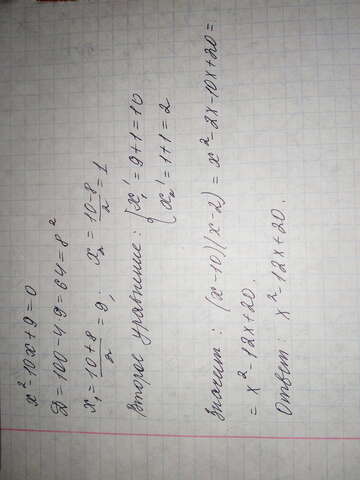 x² - 10x + 9 = 0
D = 100 - 4·9 = 64 = 8²
x₁ = (10+8)/2 = 9, x₂ = (10-8)/2 = 1
Второе уравнение: { x₁' = 9+1 = 10
x₂' = 1+1 = 2
Значит: (x-10)(x-2) = x² - 2x - 10x + 20 =
= x² - 12x + 20.
Ответ: x² - 12x + 20.